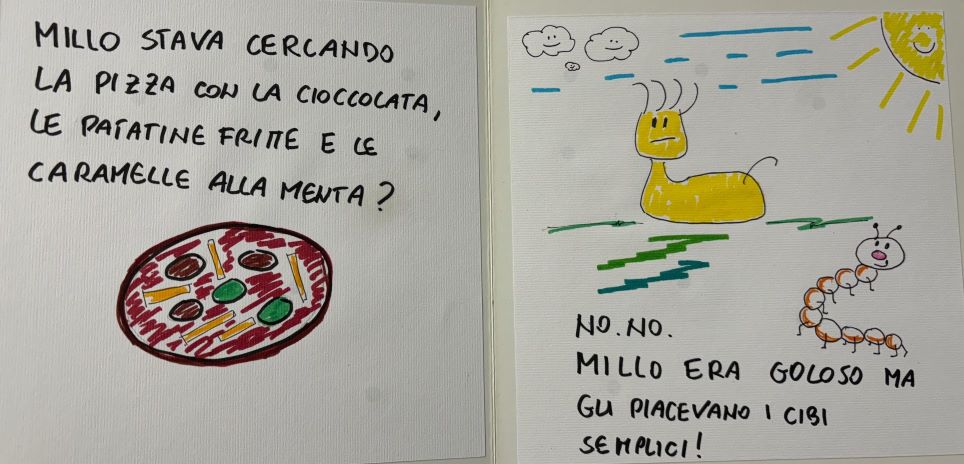 MILLO STAVA CERCANDO
LA PIZZA CON LA CIOCCOLATA,
LE PATATINE FRITTE E LE
CARAMELLE ALLA MENTA?
NO. NO.
MILLO ERA GOLOSO MA
GLI PIACEVANO I CIBI
SEMPLICI!